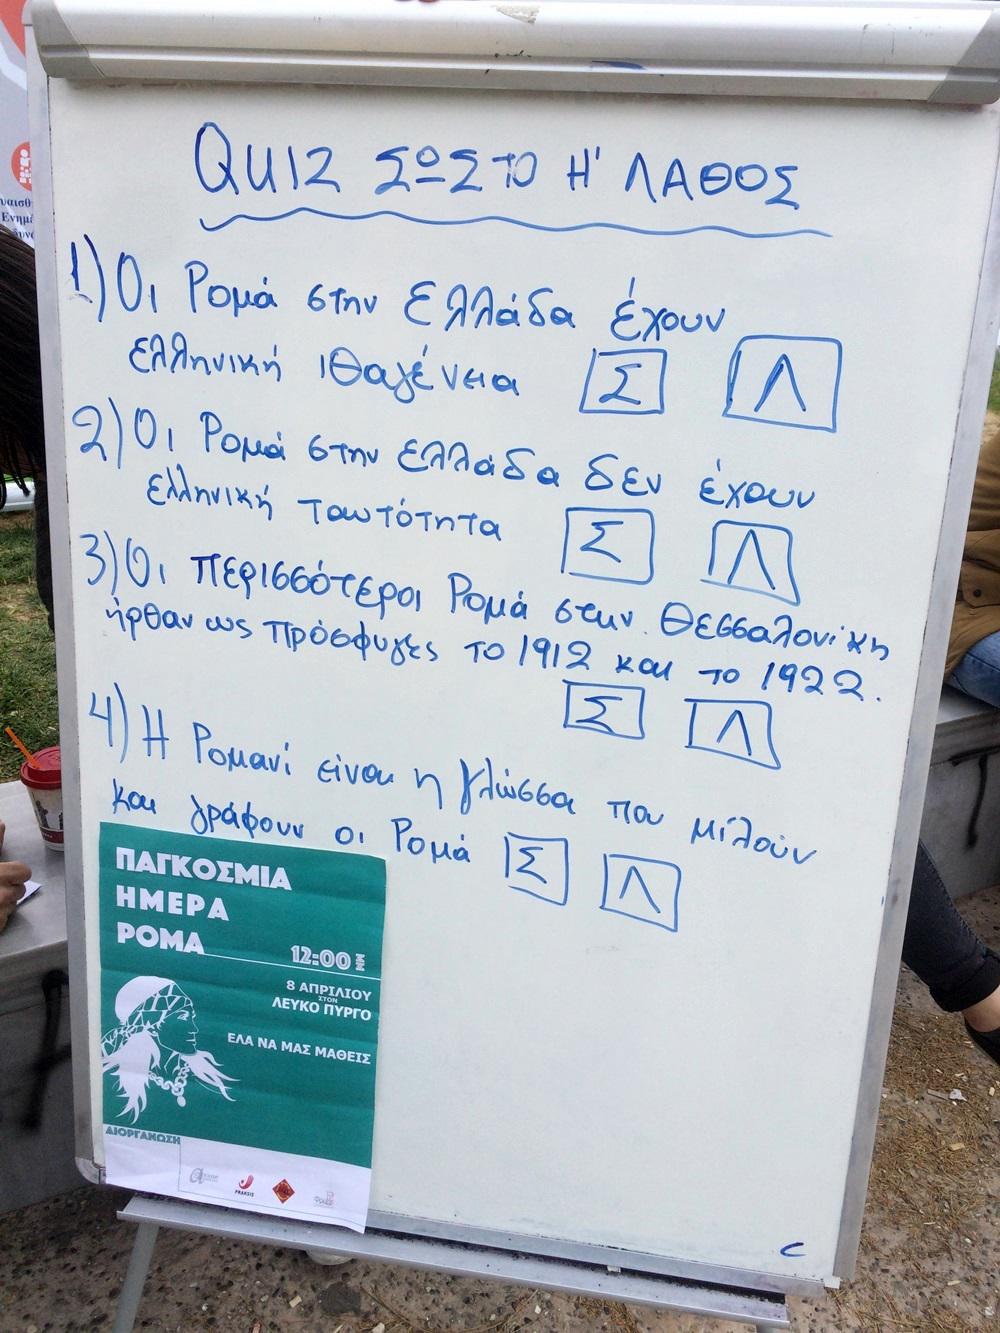 QUIZ ΣΩΣΤΟ Η' ΛΑΘΟΣ
1) Οι Ρομά στην Ελλάδα έχουν
ελληνική ιθαγένεια Σ Λ
2) Οι Ρομά στην Ελλάδα δεν έχουν
ελληνική ταυτότητα Σ Λ
3) Οι περισσότεροι Ρομά στην Θεσσαλονίκη
ήρθαν ως πρόσφυγες το 1912 και το 1922.
Σ Λ
4) Η Ρομανί είναι η γλώσσα που μιλούν
και γράφουν οι Ρομά Σ Λ
ΠΑΓΚΟΣΜΙΑ
ΗΜΕΡΑ
ΡΟΜΑ
12:00
8 ΑΠΡΙΛΙΟΥ
ΣΤΟΝ
ΛΕΥΚΟ ΠΥΡΓΟ
ΕΛΑ ΝΑ ΜΑΣ ΜΑΘΕΙΣ
ΔΙΟΡΓΑΝΩΣΗ
PRAKSIS